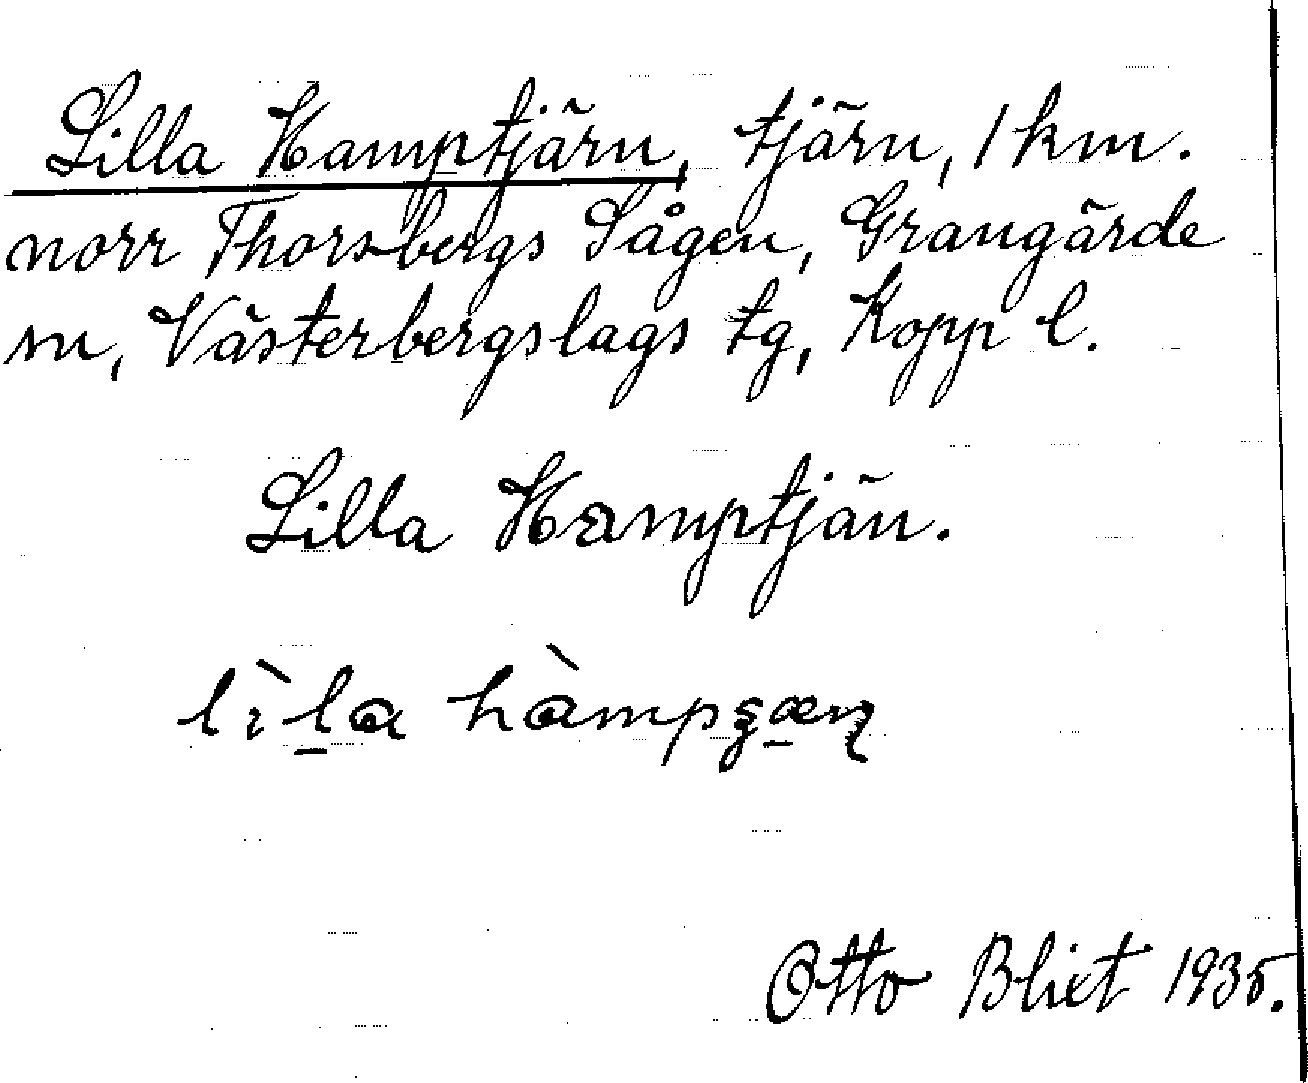 Lilla Hamptjärn, tjärn, 1 km.
norr Thorsbergs Sågen, Grangärde
sn, Västerbergslags tg, Kopp l.
Lilla Hamptjän.
Otto Blixt 1935.